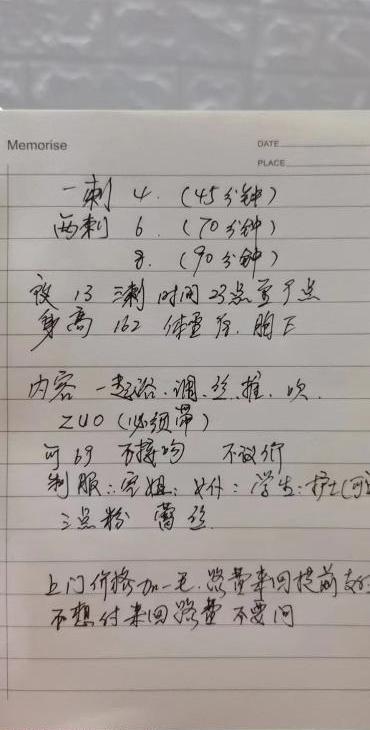 Memorise
DATE
PLACE
一刺 4. (45分钟)
两刺 6. (70分钟)
8. (90分钟)
夜 13 三刺 时间23点至9点
身高 162 体重 胸E
内容 一起浴.调.丝推.吹.
ZUO (必须带)
可69 不接吻 不议价
制服:空姐:女仆:学生:护士(可
三点粉 蕾丝.
上门价格加一毛.路费来回提前支付
不想付来回路费 不要问